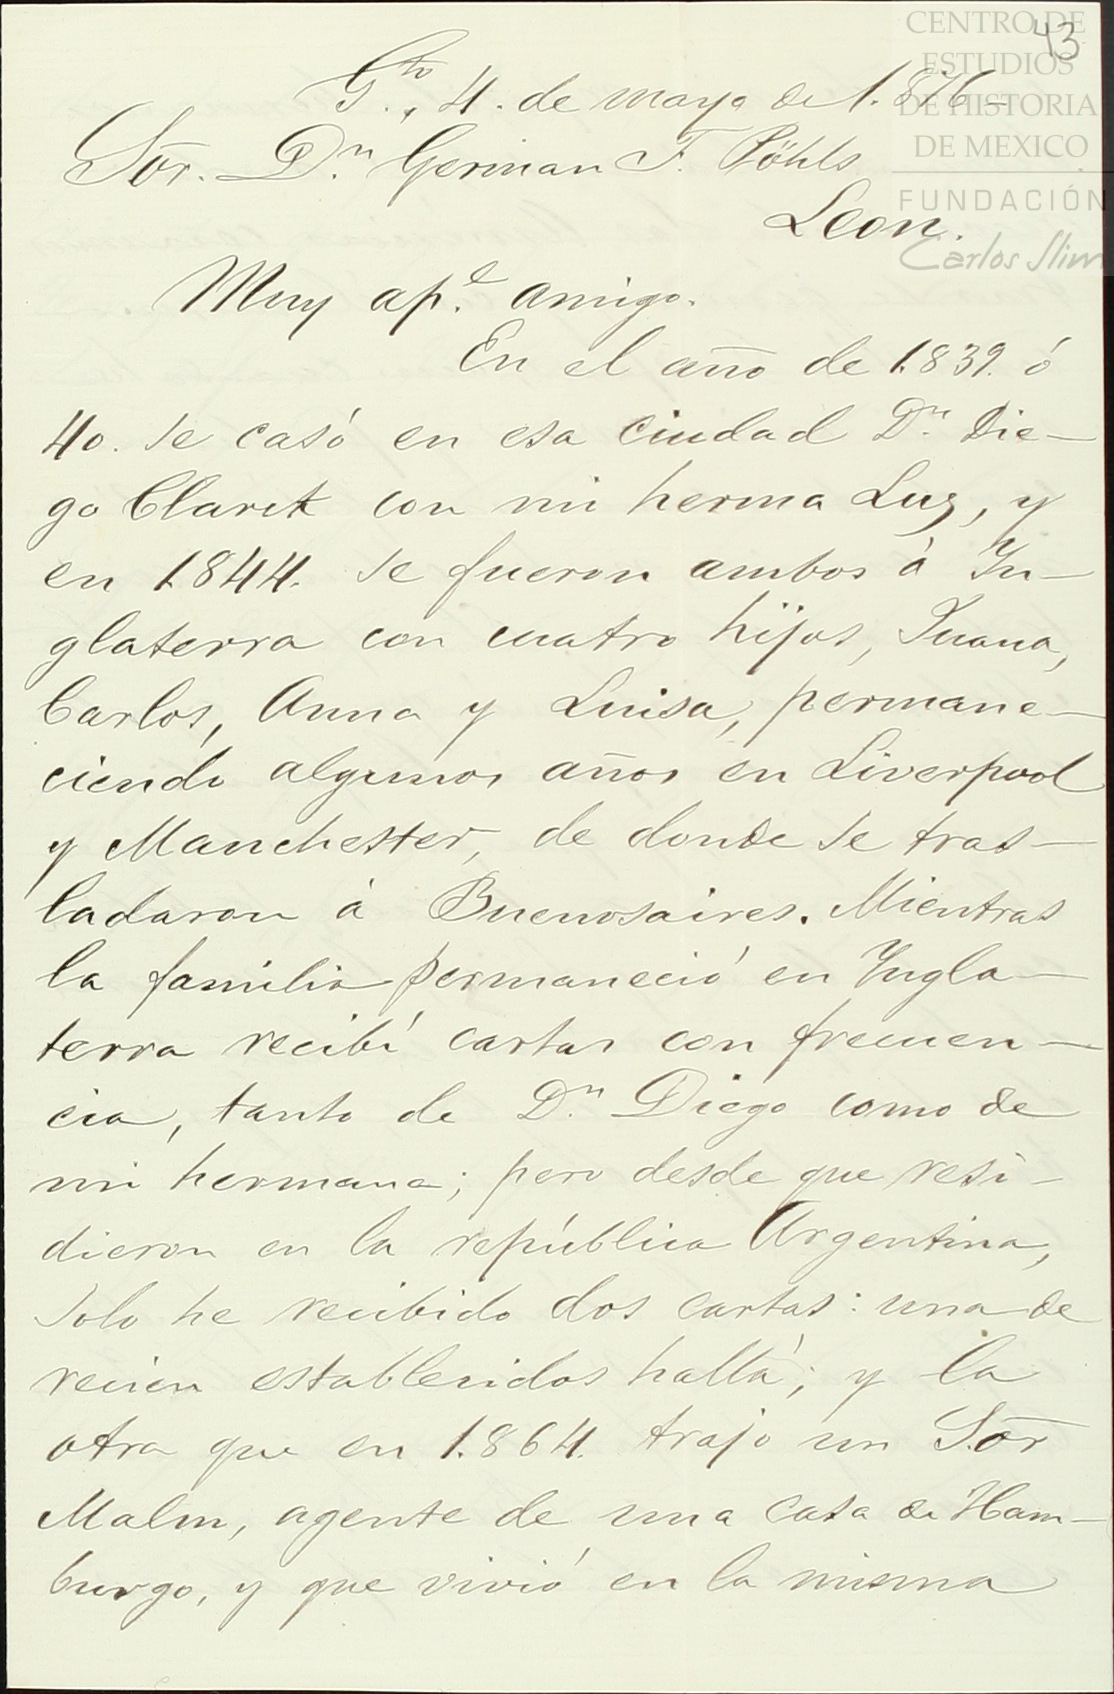 43
CENTRO DE
ESTUDIOS
DE HISTORIA
DE MEXICO
FUNDACIÓN
Carlos Slim
G.to, 4. de mayo de 1.876
Sōr. D.n German F. Pöhls
Leon.
Muy ap.e amigo.
En el año de 1.839. ó
40. se casó en esa ciudad D.n Die-
go Claret con mi herma Luz, y
en 1.844. se fueron ambos á In-
glaterra con cuatro hijos, Juana,
Carlos, Anna y Luisa, permane-
ciendo algunos años en Liverpool
y Manchester, de donde se tras-
ladaron á Buenosaires. Mientras
la familia permaneció en Ingla-
terra recibí cartas con frecuen-
cia, tanto de D.n Diego como de
mi hermana; pero desde que resi-
dieron en la república Argentina,
solo he recibido dos cartas: una de
recien establecidos hallá; y la
otra que en 1.864. trajo un Sōr
Malm, agente de una casa de Ham-
burgo, y que vivió en la misma